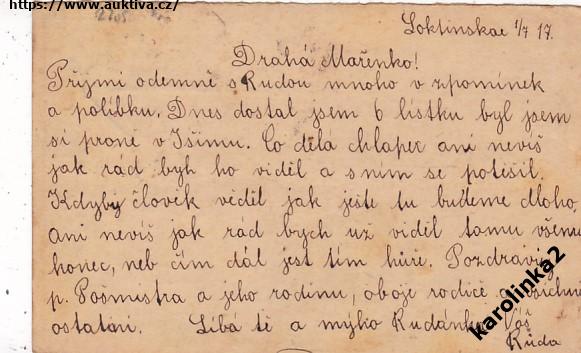 https://www.auktiva.cz/
Loktinskae 1/7 17.
Drahá Mařenko!
Přijmi odemně s Rudou mnoho v zpomínek
a polibku. Dnes dostal jsem 6 lístku byl jsem
si proně v Išimu. Co dělá chlapec ani nevíš
jak rád bych ho viděl a s ním se potěšil.
Kdyby člověk věděl jak ješte tu budeme dloho,
ani nevíš jak rád bych už viděl tomu všemu
konec, neb čím dál jest tím hůře. Pozdravuj
p. Pošmistra a jeho rodinu, oboje rodiče a všichni
ostatní. Líbá tě a mýho Rudánka Váš
Ruda
karolinka2